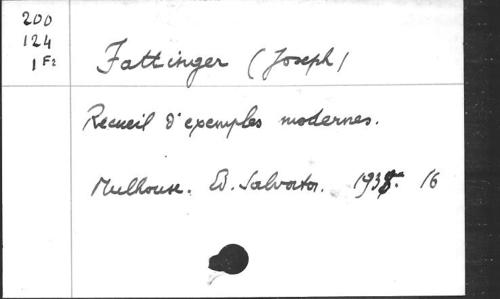 200
124
1 F2
Fattinger (Joseph)
Recueil d'exemples modernes.
Mulhouse. Ed. Salvator. 16